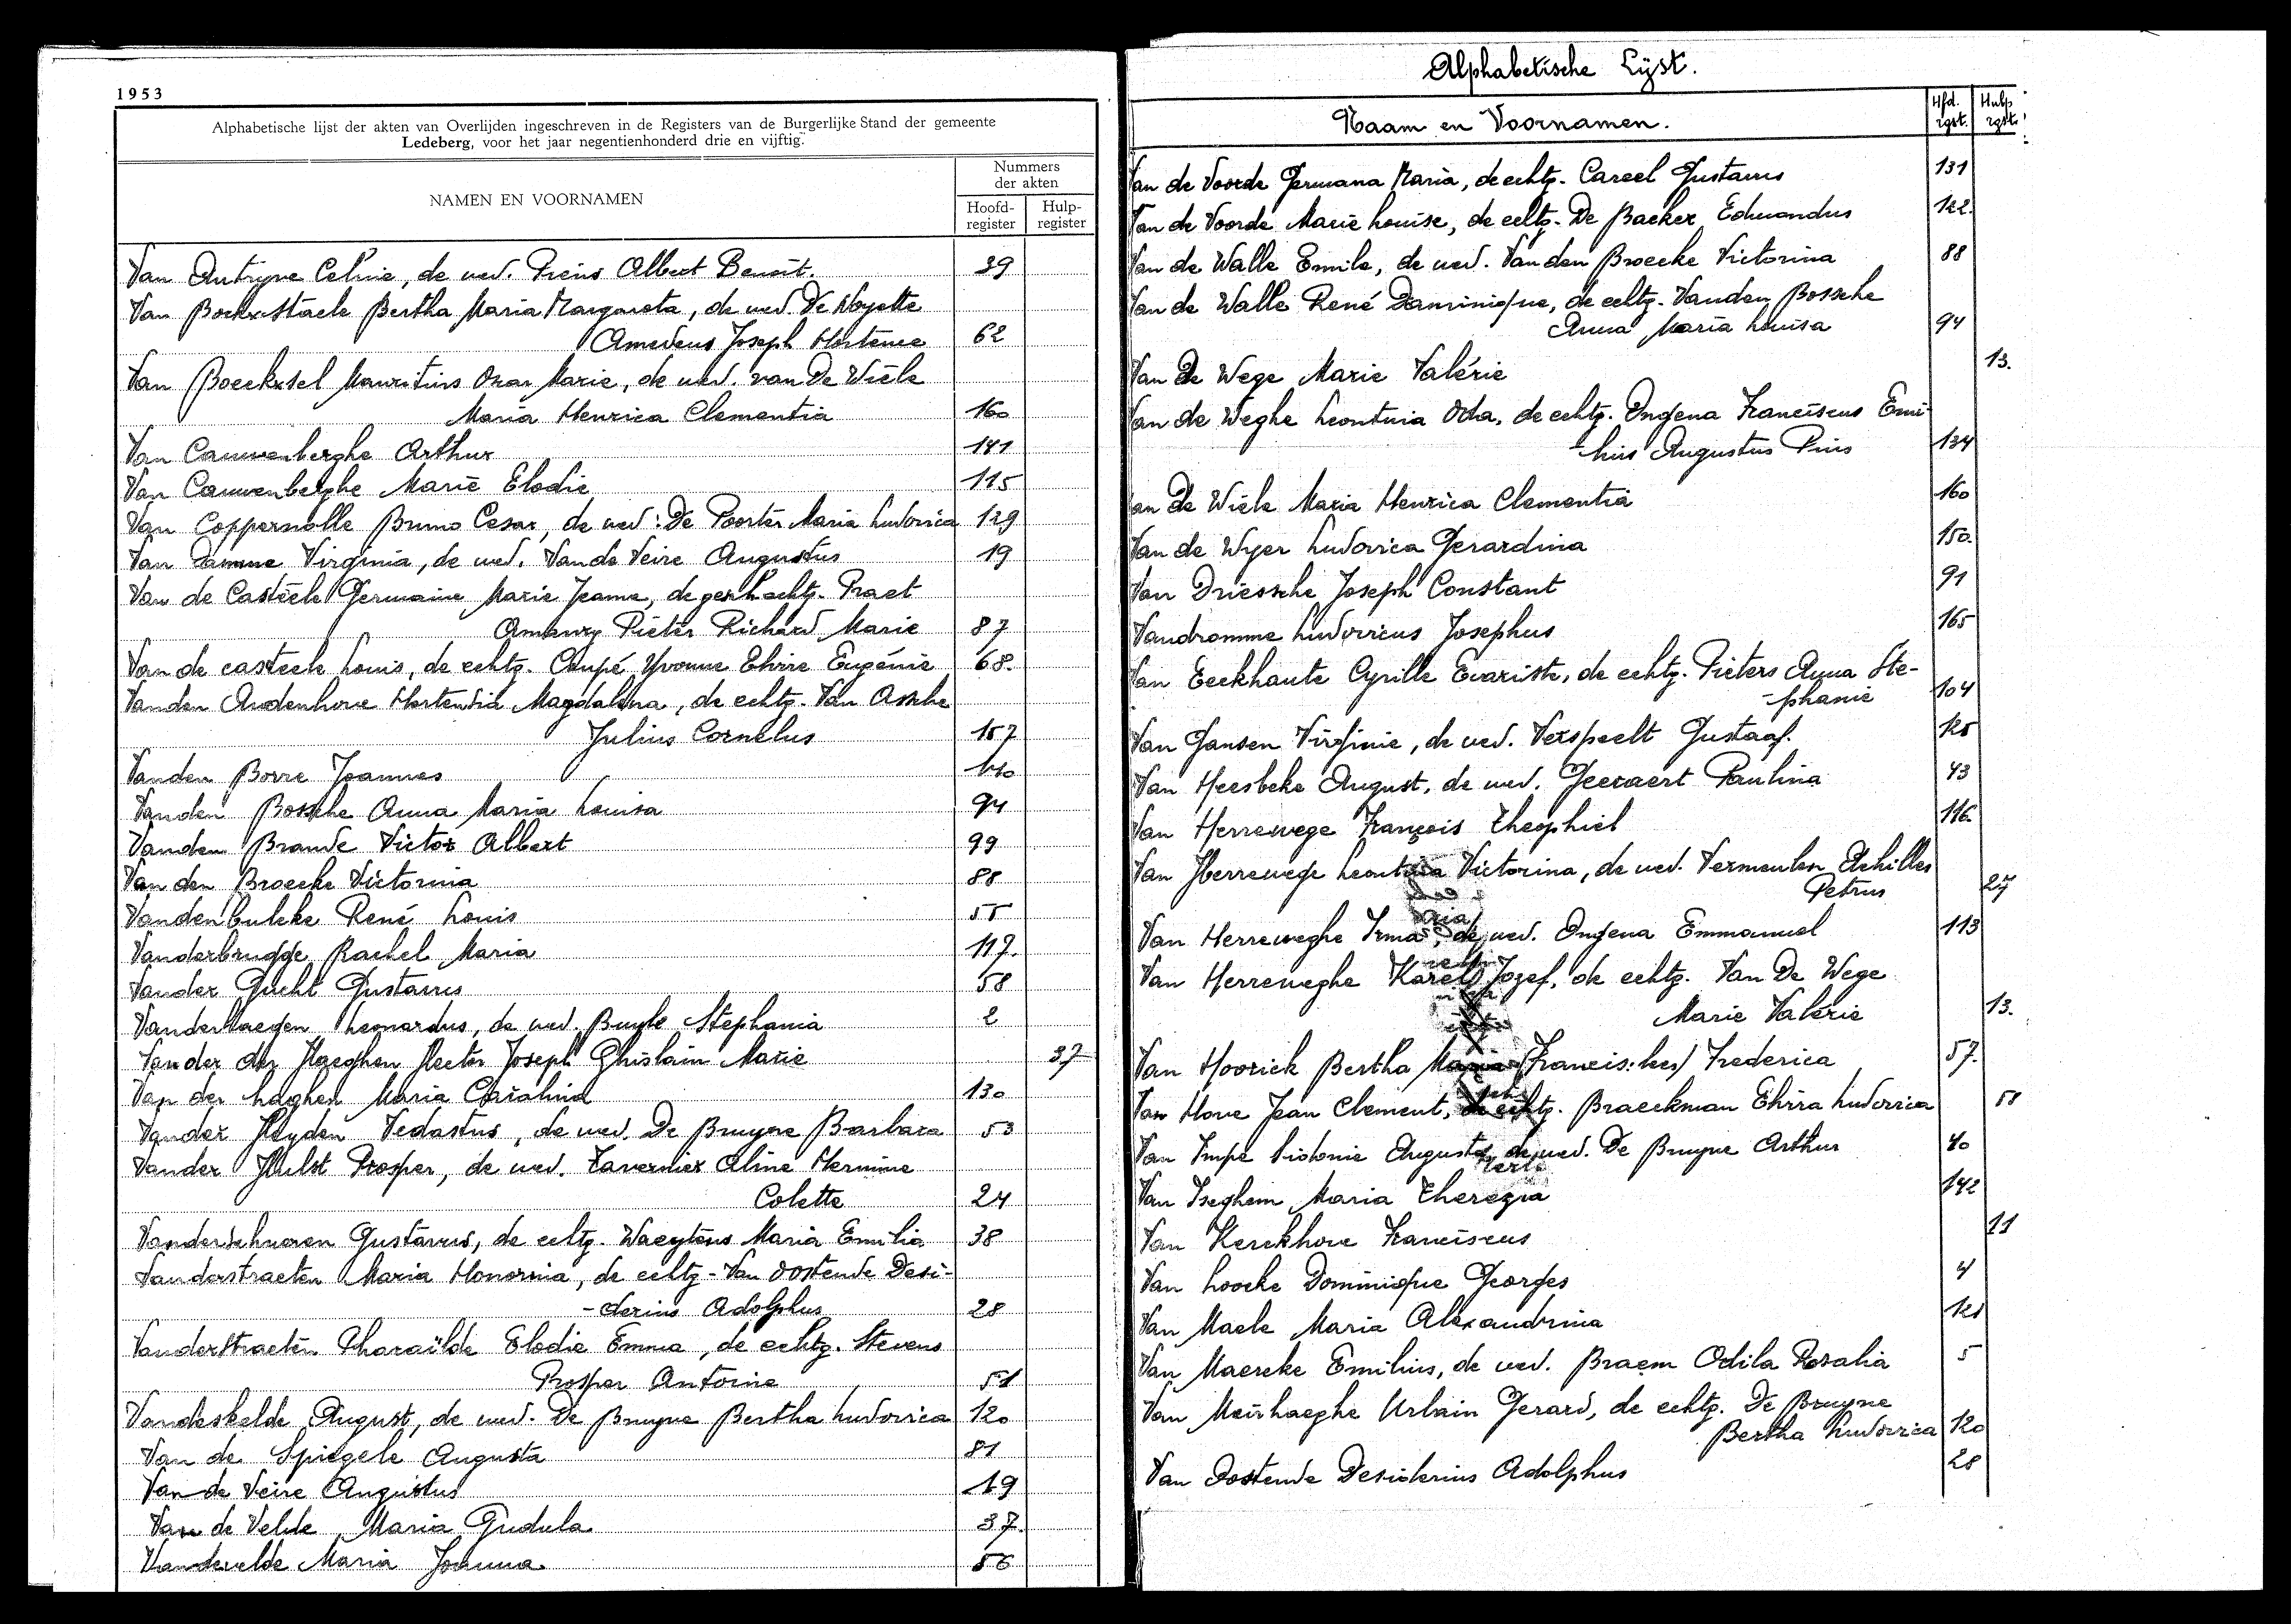 1953
Alphabetische lijst der akten van Overlijden ingeschreven in de Registers van de Burgerlijke Stand der gemeente
Ledeberg, voor het jaar negentienhonderd drie en vijftig.
NAMEN EN VOORNAMEN
Nummers
der akten
Hoofd-
register
Hulp-
register
Van Antryve Celine, de wed. Preins Albert Benoit. 39
Van Bockxstaele Bertha Maria Margareta, de wed. De Noyette
Amedeus Joseph Hortence 62
Van Boeckxsel Mauritius Oscar Marie, de wed. van De Wiele
Maria Henrica Clementia 160
Van Cauwenberghe Arthur 141
Van Cauwenberghe Marie Elodie 115
Van Coppernolle Bruno Cesar, de wed: De Poorter Maria Ludovica 129
Van Damme Virginia, de wed. Van de Veire Augustus 19
Van de Casteele Germaine Marie Jeanne, de echtg. Praet
Amaury Pieter Richard Marie 87
Van de casteele Louis, de echtg. Coupé Yvonne Elvire Eugénie 68.
Vanden Audenhove Hortensia Magdalena, de echtg. Van Assche
Julius Cornelus 157
Vanden Borre Joannes 140
Vanden Bossche Anna Maria Louisa 94
Vanden Brande Victor Albert 99
Van den Broecke Victorina 88
Vandenbulcke René Louis 55
Vanderbrugge Rachel Maria 117.
Vander Gucht Gustavus 58
Vanderhaegen Leonardus, de wed. Buyle Stephania 2
Van der der Haeghen Hector Joseph Ghislain Marie 37
Van der haghen Maria Carolina 130
Vander Heyden Vedastus, de wed. De Bruyne Barbara 53
Vander Hulst Prosper, de wed. Tavernier Aline Hermine
Colette 24
Vanderschueren Gustavus, de echtg. Waeytens Maria Emilia 38
Vanderstraeten Maria Honorina, de echtg- Van Oostende Desi-
-derius Adolphus 28
Vanderstraeten Pharaïlde Elodie Emma, de echtg. Stevens
Prosper Antoine 51
Vandeskelde August, de wed. De Bruyne Bertha Ludovica 120
Van de Spiegele Augusta 81
Van de Veire Augustus 19
Van de Velde Maria Gudula 37.
Vandevelde Maria Joanna 56
Alphabetische Lijst.
Naam en Voornamen.
Hfd.
rgst.
Hulp
rgst.
Van de Voorde Germana Maria, de echtg. Careel Gustavus 131
Van de Voorde Marie Louise, de echtg. De Backer Edmondus 122.
Van de Walle Emile, de wed. Van den Broecke Victorina 88
Van de Walle René Dominique, de echtg. Vanden Bossche
Anna Maria Louisa 94
Van De Wege Marie Valérie 13.
Van de Weghe Leontina Oda, de echtg. Ongena Franciscus Emi-
-lius Augustus Pius 134
Van De Wiele Maria Henrica Clementia 160
Van de Wyer Ludovica Gerardina 150.
Van Driessche Joseph Constant 91
Vandromme Ludovicus Josephus 165
Van Eeckhaute Cyrille Evariste, de echtg. Pieters Anna Ste-
-phanie 104
Van Gansen Virginie, de wed. Verspeelt Gustaaf. 125
Van Heesbeke August, de wed. Geeraert Paulina 43
Van Herrewege François Theophiel 116.
Van Herrewege Leontina Victorina, de wed. Vermeulen Achilles
Petrus 27
Van Herreweghe Irma, de wed. Ongena Emmanuel 113
Van Herreweghe Karel Jozef, de echtg. Van De Wege
Marie Valérie 13.
Van Hoorick Bertha Maria (Francis: lees) Frederica 57.
Van Hove Jean Clement, de echtg. Braeckman Elvira Ludovica 58
Van Impe Sidonie Augusta, de wed. De Bruyne Arthur 40
Van Iseghem Maria Therezia 142
Van Kerckhove Franciscus 11
Van Loocke Dominique Georges 4
Van Maele Maria Alexandrina 121
Van Maercke Emilius, de wed. Braem Odila Rosalia 5
Van Meirhaeghe Urbain Gerard, de echtg. De Bruyne
Bertha Ludovica 120
Van Oostende Desiderius Adolphus 28